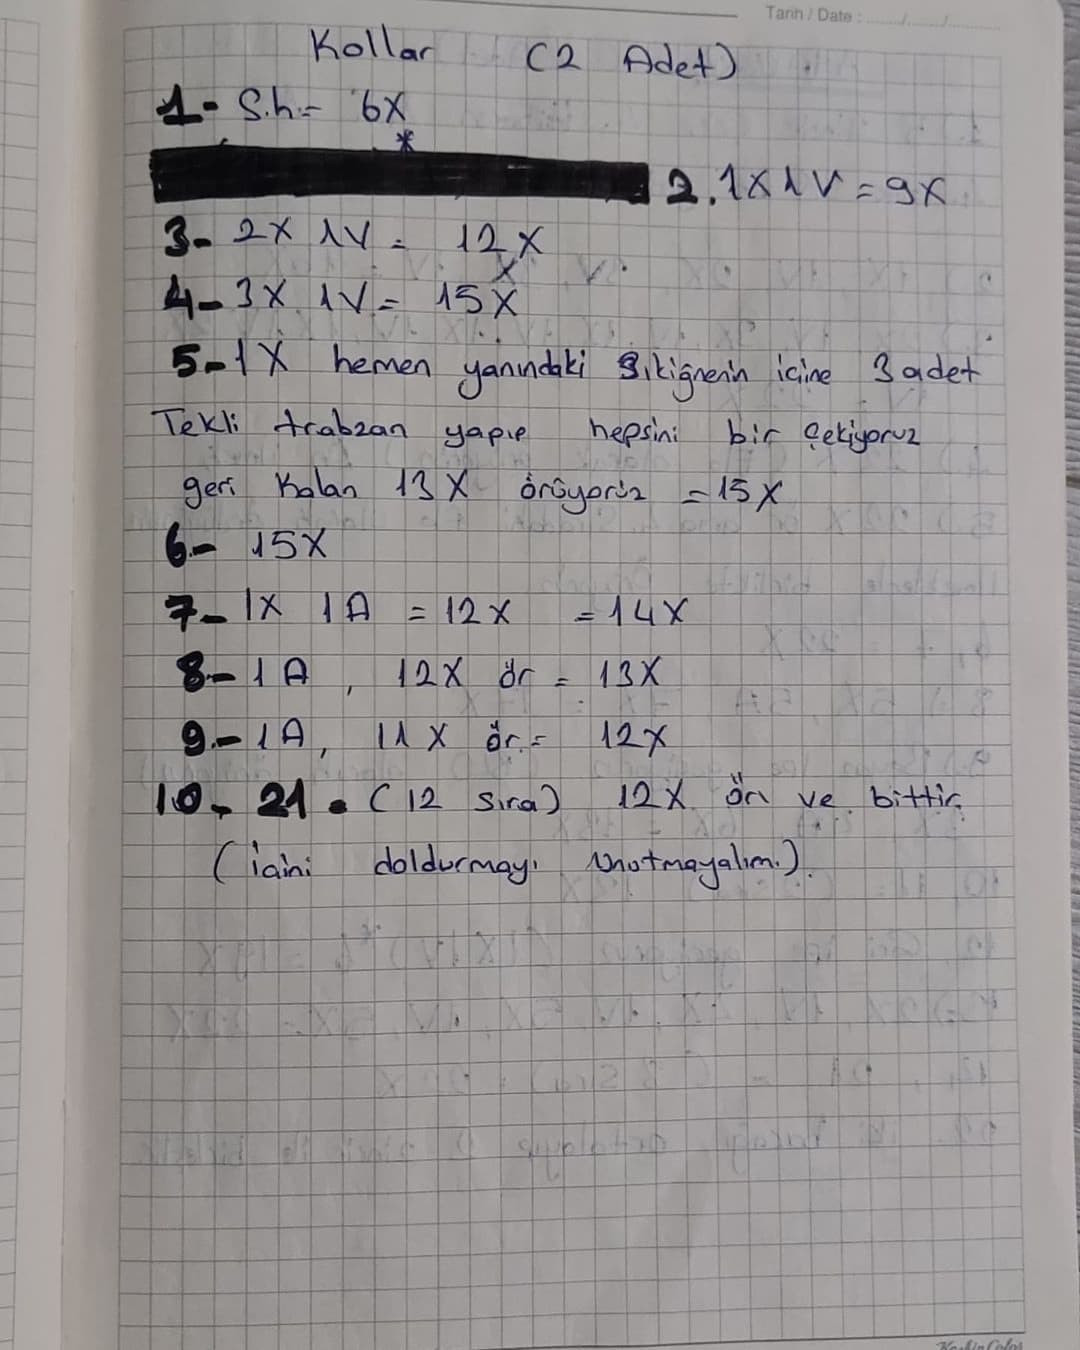 Tarih / Date : ....../....../......
Kollar (2 Adet)
1- S.h.= 6X
2. 1X 1V = 9X
3- 2X 1V = 12X
4- 3X 1V = 15X
5- 1X hemen yanındaki sıkiğnenin içine 3 adet
Tekli trabzan yapıp hepsini bir çekiyoruz
geri kalan 13X örüyoruz = 15X
6- 15X
7- 1X 1A = 12X = 14X
8- 1A, 12X ör = 13X
9.- 1A, 11X ör.= 12X
10- 21. (12 sıra) 12X ör ve bittir.
(içini doldurmayı unutmayalım.)